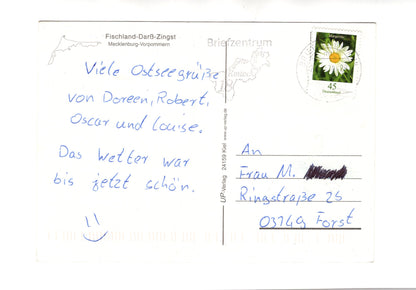 Fischland-Darß-Zingst
Mecklenburg-Vorpommern
Briefzentrum
45
Deutschland
Viele Ostseegrüße
von Doreen, Robert,
Oscar und Louise.
Das Wetter war
bis jetzt schön.
UP-Verlag 24159 Kiel www.up-verlag.de
An
Frau M.
Ringstraße 25
03149 Forst